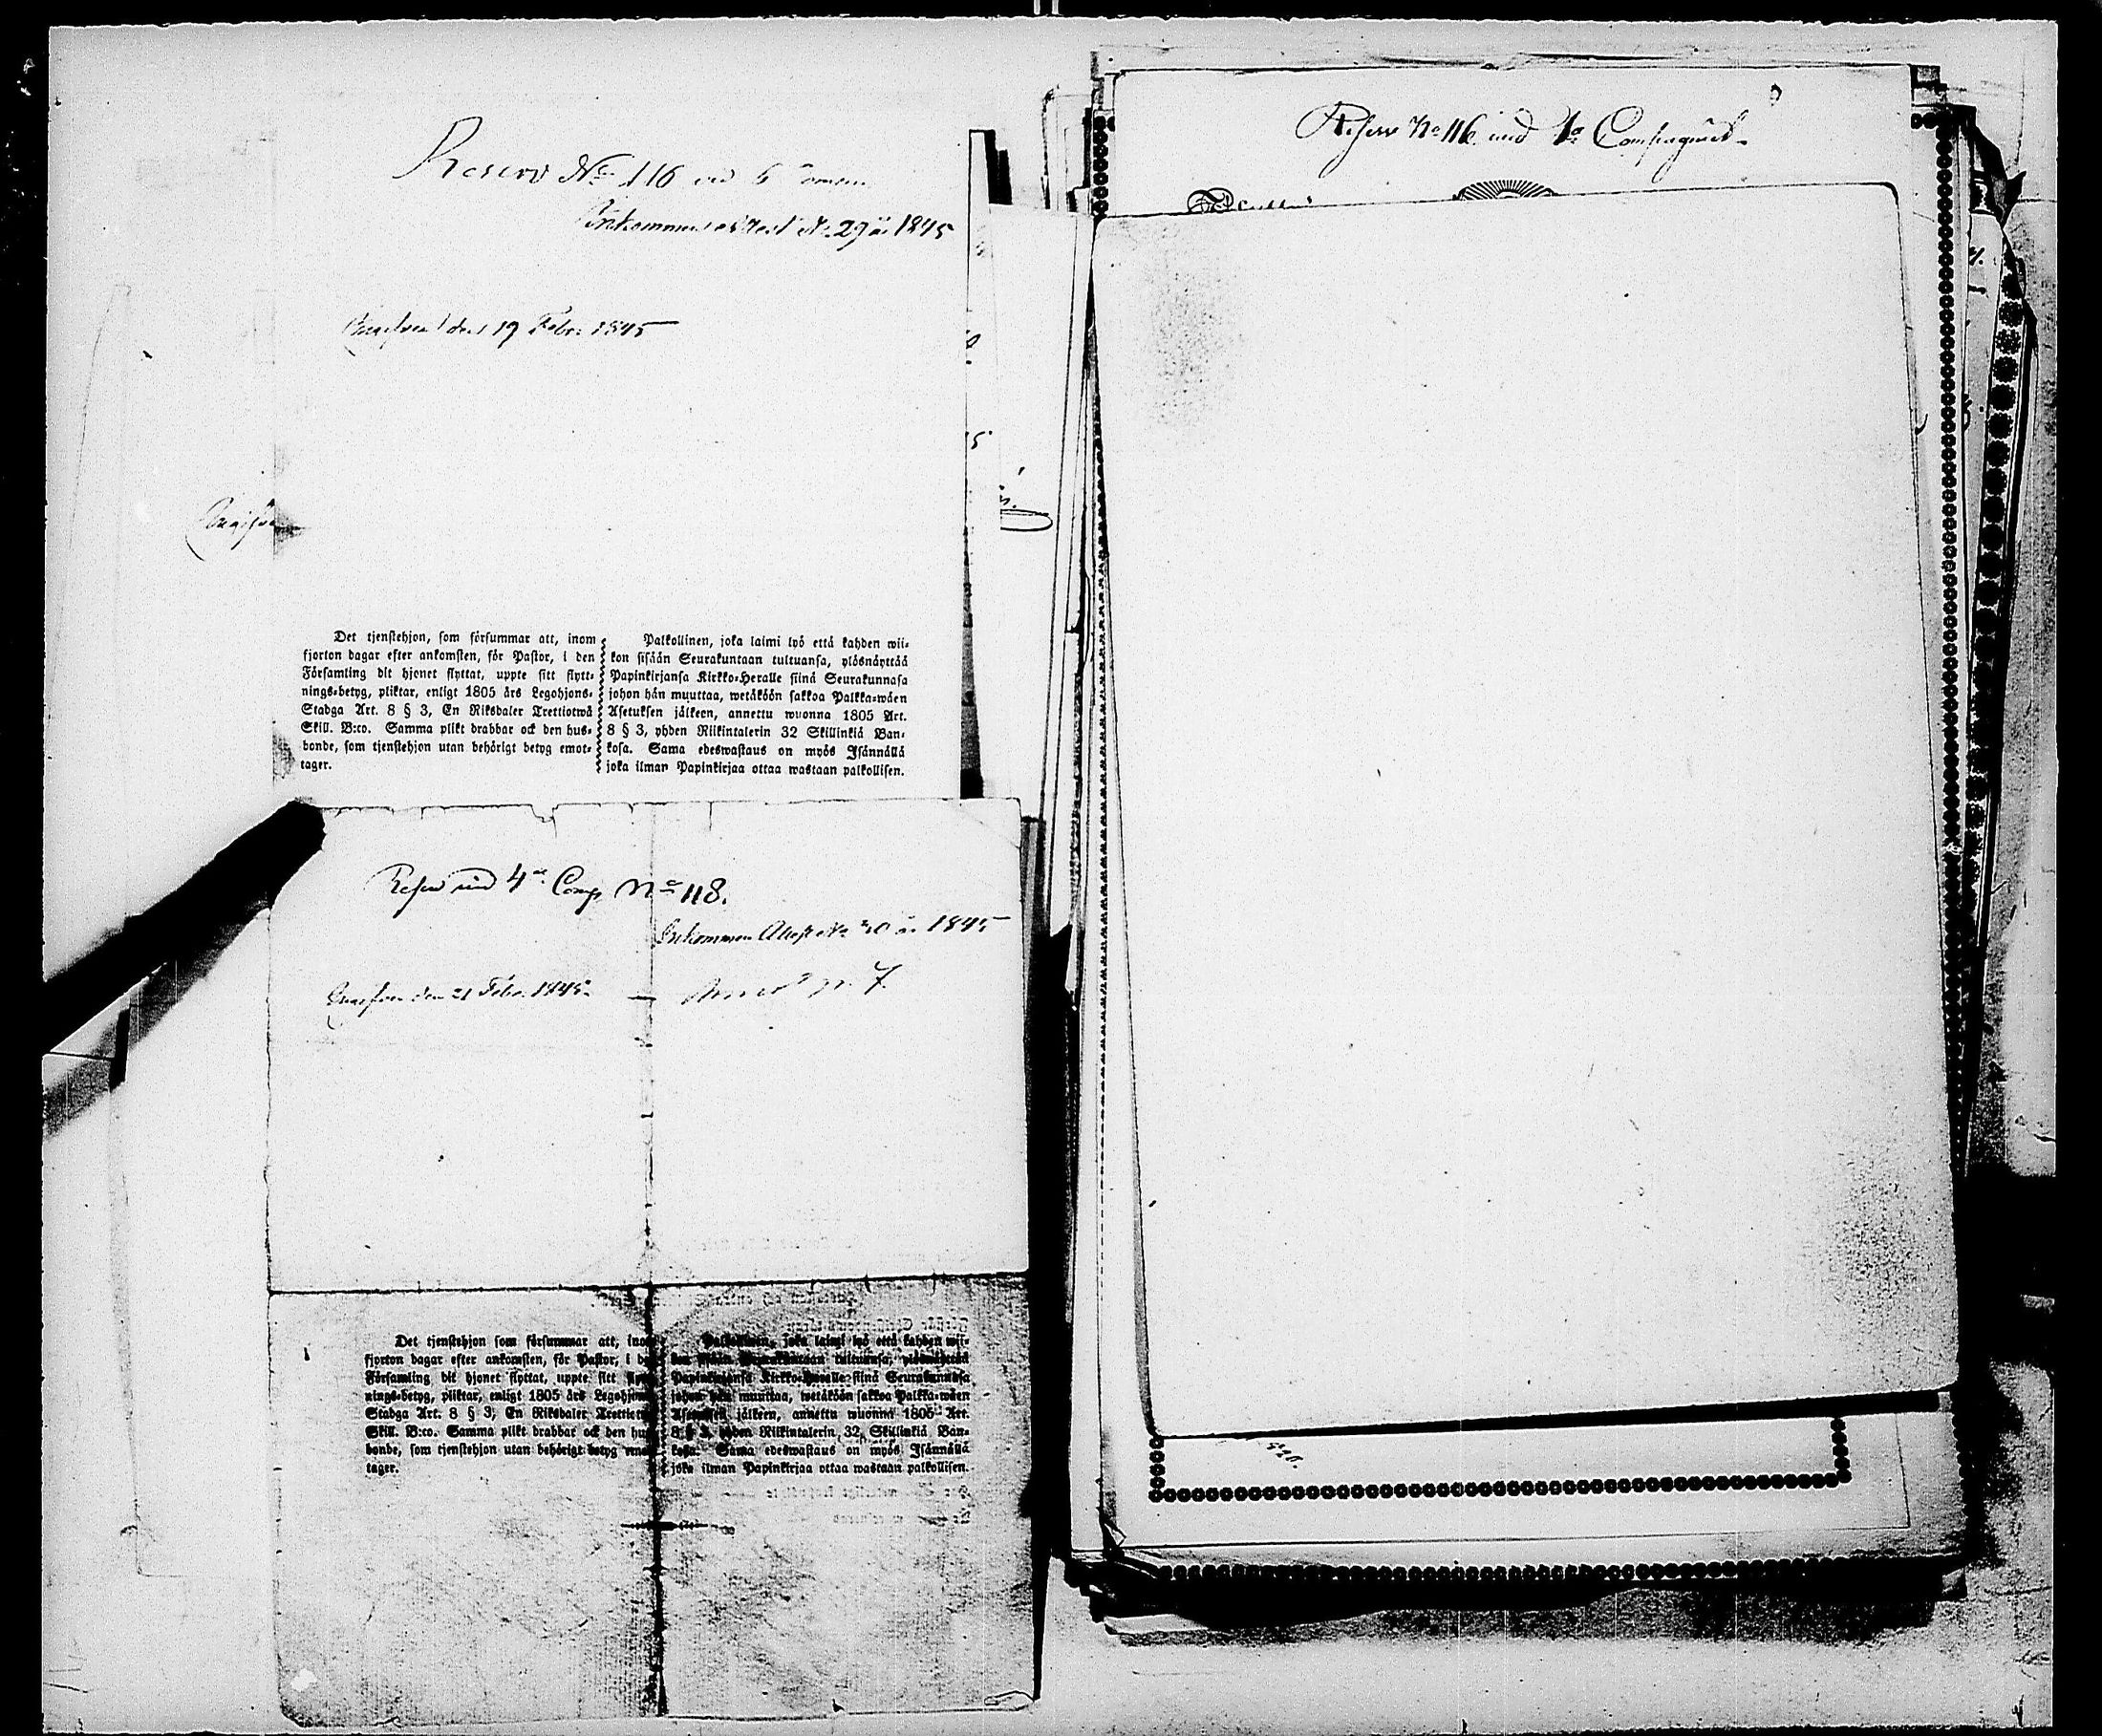 Reserv No 116 vid 6
Inkommen attest No 29 år 1845
den 19 Febr. 1845
Det tjenstehjon, som försummar att, inom
fjorton dagar efter ankomsten, för Pastor, i den
Församling dit hjonet flyttat, uppte sitt flytt-
nings-betyg, pliktar, enligt 1805 års Legohjons-
Stadga Art. 8 § 3, En Riksdaler Trettiotwå
Skill. B:co. Samma plikt drabbar ock den hus-
bonde, som tjenstehjon utan behörigt betyg emot-
tager.
Palkollinen, joka laimi lyö että kahden wii-
kon sisään Seurakuntaan tultuansa, ylösnäyttää
Papinkirjansa Kirkko-Heralle siinä Seurakunnasa
johon hän muuttaa, wetäköön sakkoa Palkka-wäen
Asetuksen jälkeen, annettu wuonna 1805 Art.
8 § 3, yhden Riikintalerin 32 Skillinkiä Ban-
kosa. Sama edeswastaus on myös Isännällä
joka ilman Papinkirjaa ottaa wastaan palkollisen.
Reserv vid 4de Comp No 118.
Inkommen Attest No 30 år 1845
den 21 Febr. 1845
7.
Det tjenstehjon som försummar att,
fjorton dagar efter ankomsten, för Pastor, i
Församling dit hjonet flyttat, uppte sitt
nings-betyg, pliktar, enligt 1805 års
Stadga Art. 8 § 3, En Riksdaler
Skill. B:co. Samma plikt drabbar ock den
bonde, som tjenstehjon utan behörigt betyg
tager.
joka laimi lyö että kahden wii-
tultuansa,
Kirkko-Heralle siinä Seurakunnasa
muuttaa, wetäköön sakkoa Palkka-wäen
jälkeen, annettu wuonna 1805 Art.
8 § 3, yhden Riikintalerin 32 Skillinkiä Ban-
kosa. Sama edeswastaus on myös Isännällä
joka ilman Papinkirjaa ottaa wastaan palkollisen.
Reserv No 116 vid Compagniet